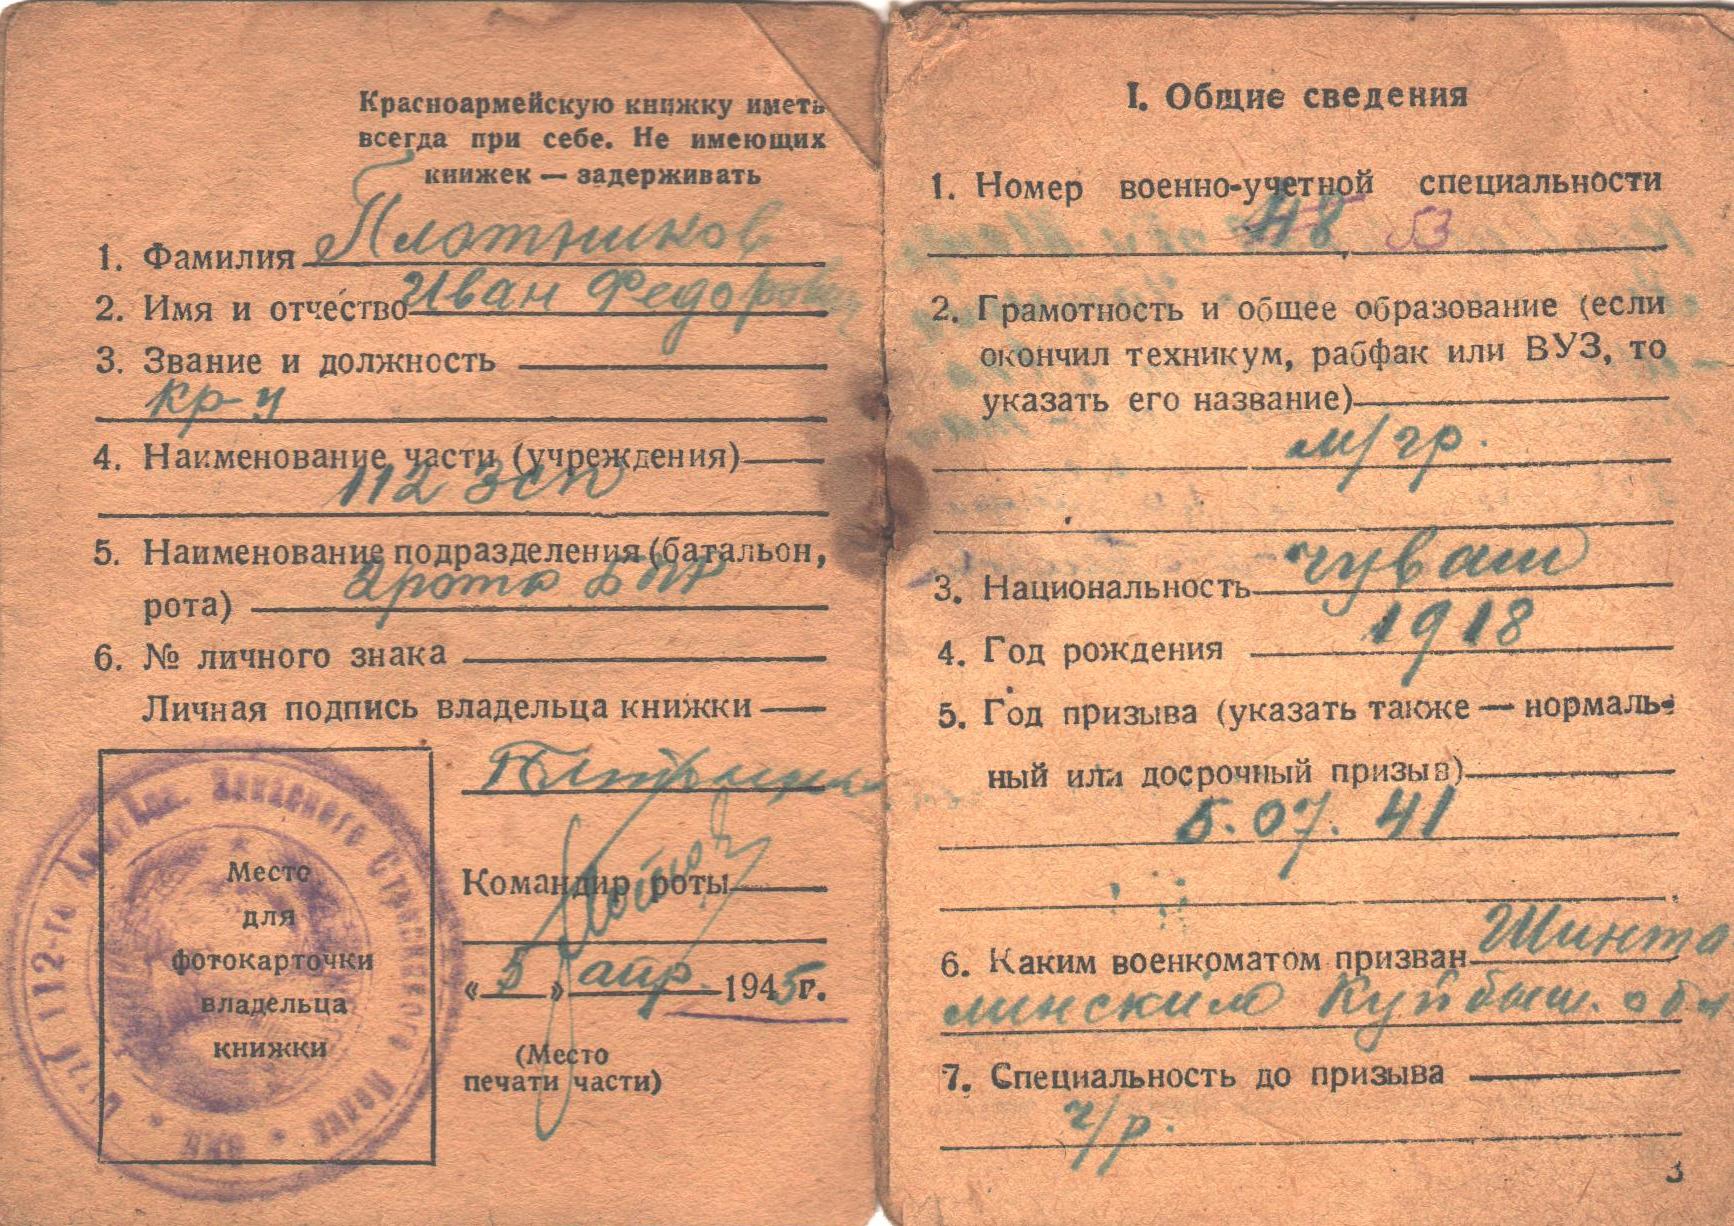 Красноармейскую книжку иметь
всегда при себе. Не имеющих
книжек — задерживать
1. Фамилия Плотников
2. Имя и отчество Иван Федорович
3. Звание и должность
кр-ц
4. Наименование части (учреждения)
112 зсп
5. Наименование подразделения (батальон,
рота) рота
6. № личного знака
Личная подпись владельца книжки
Место
для
фотокарточки
владельца
книжки
112-го Запасного Стрелкового Полка
Командир роты
« 5 » апр. 1945 г.
(Место
печати части)
I. Общие сведения
1. Номер военно-учетной специальности
48 53
2. Грамотность и общее образование (если
окончил техникум, рабфак или ВУЗ, то
указать его название)
м/гр.
3. Национальность чуваш
4. Год рождения 1918
5. Год призыва (указать также — нормаль-
ный или досрочный призыв)
5.07.41
6. Каким военкоматом призван Шинта
линским Куйбыш. обл
7. Специальность до призыва
ч/р.
3